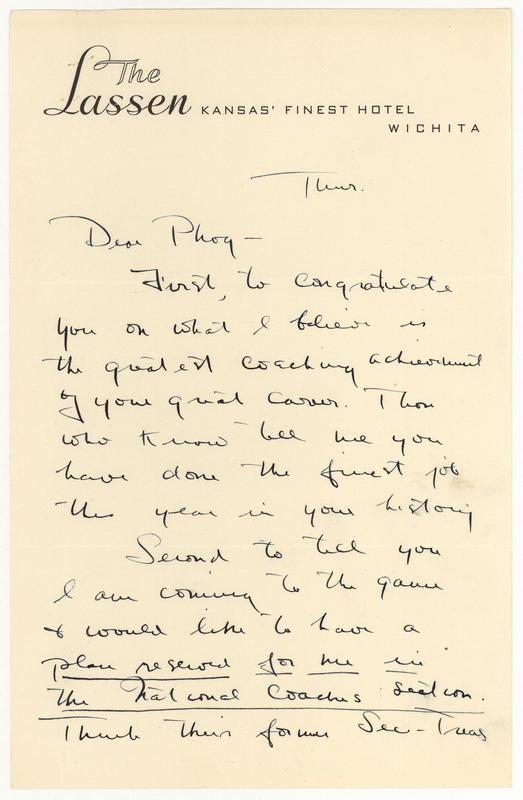 The
Lassen KANSAS' FINEST HOTEL
WICHITA
Thur.
Dear Phog –
First, to congratulate
you on what I believe is
the greatest coaching achievement
of your great career. Those
who know tell me you
have done the finest job
this year in your history
Second to tell you
I am coming to the game
& would like to have a
place reserved for me in
the National Coaches section.
Think their former Sec-Treas